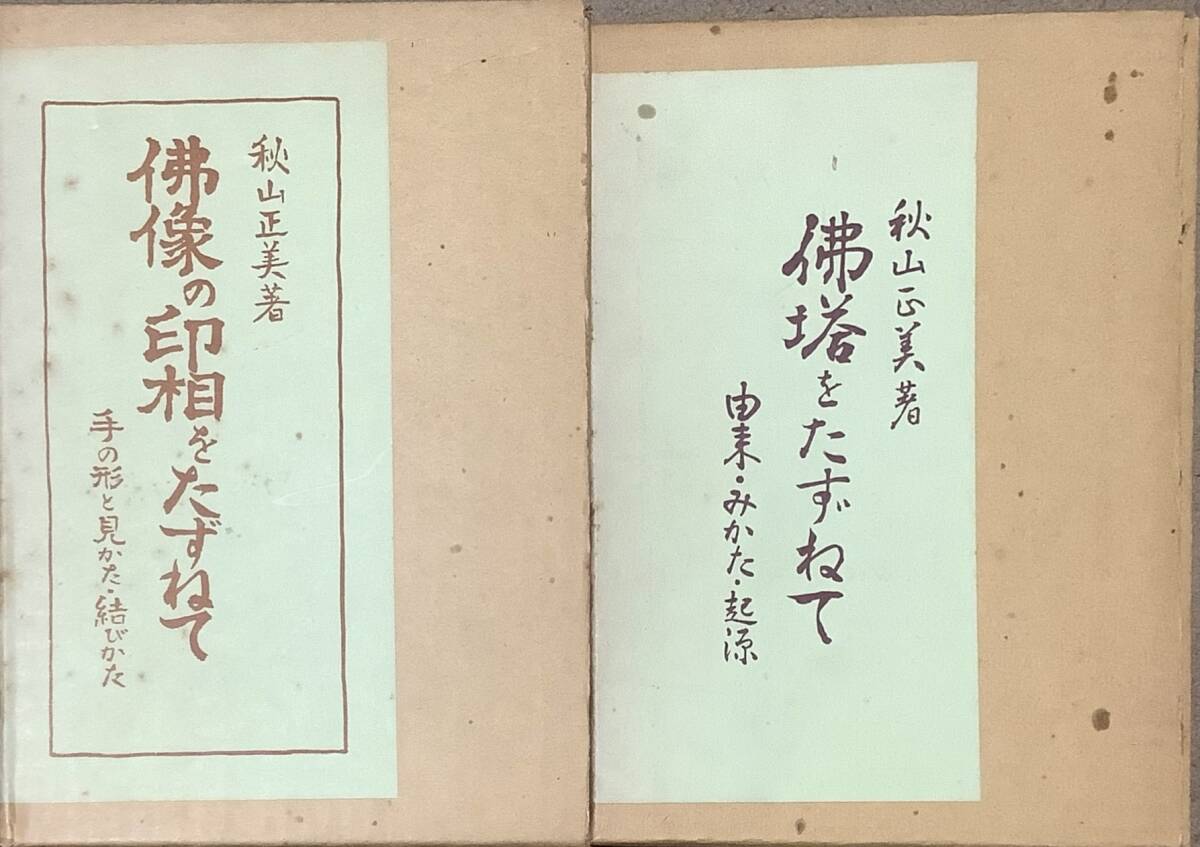 秋山正美著
佛像の印相をたずねて
手の形と見かた・結びかた
秋山正美著
佛塔をたずねて
由来・みかた・起源